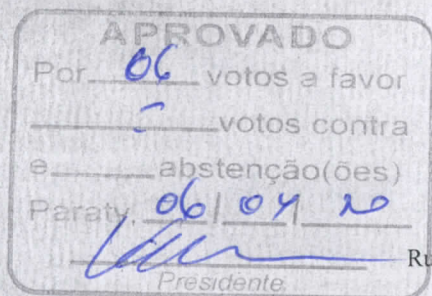 APROVADO
Por 06 votos a favor
- votos contra
e abstenção(ões)
Paraty, 06/04/20
Ru
Presidente